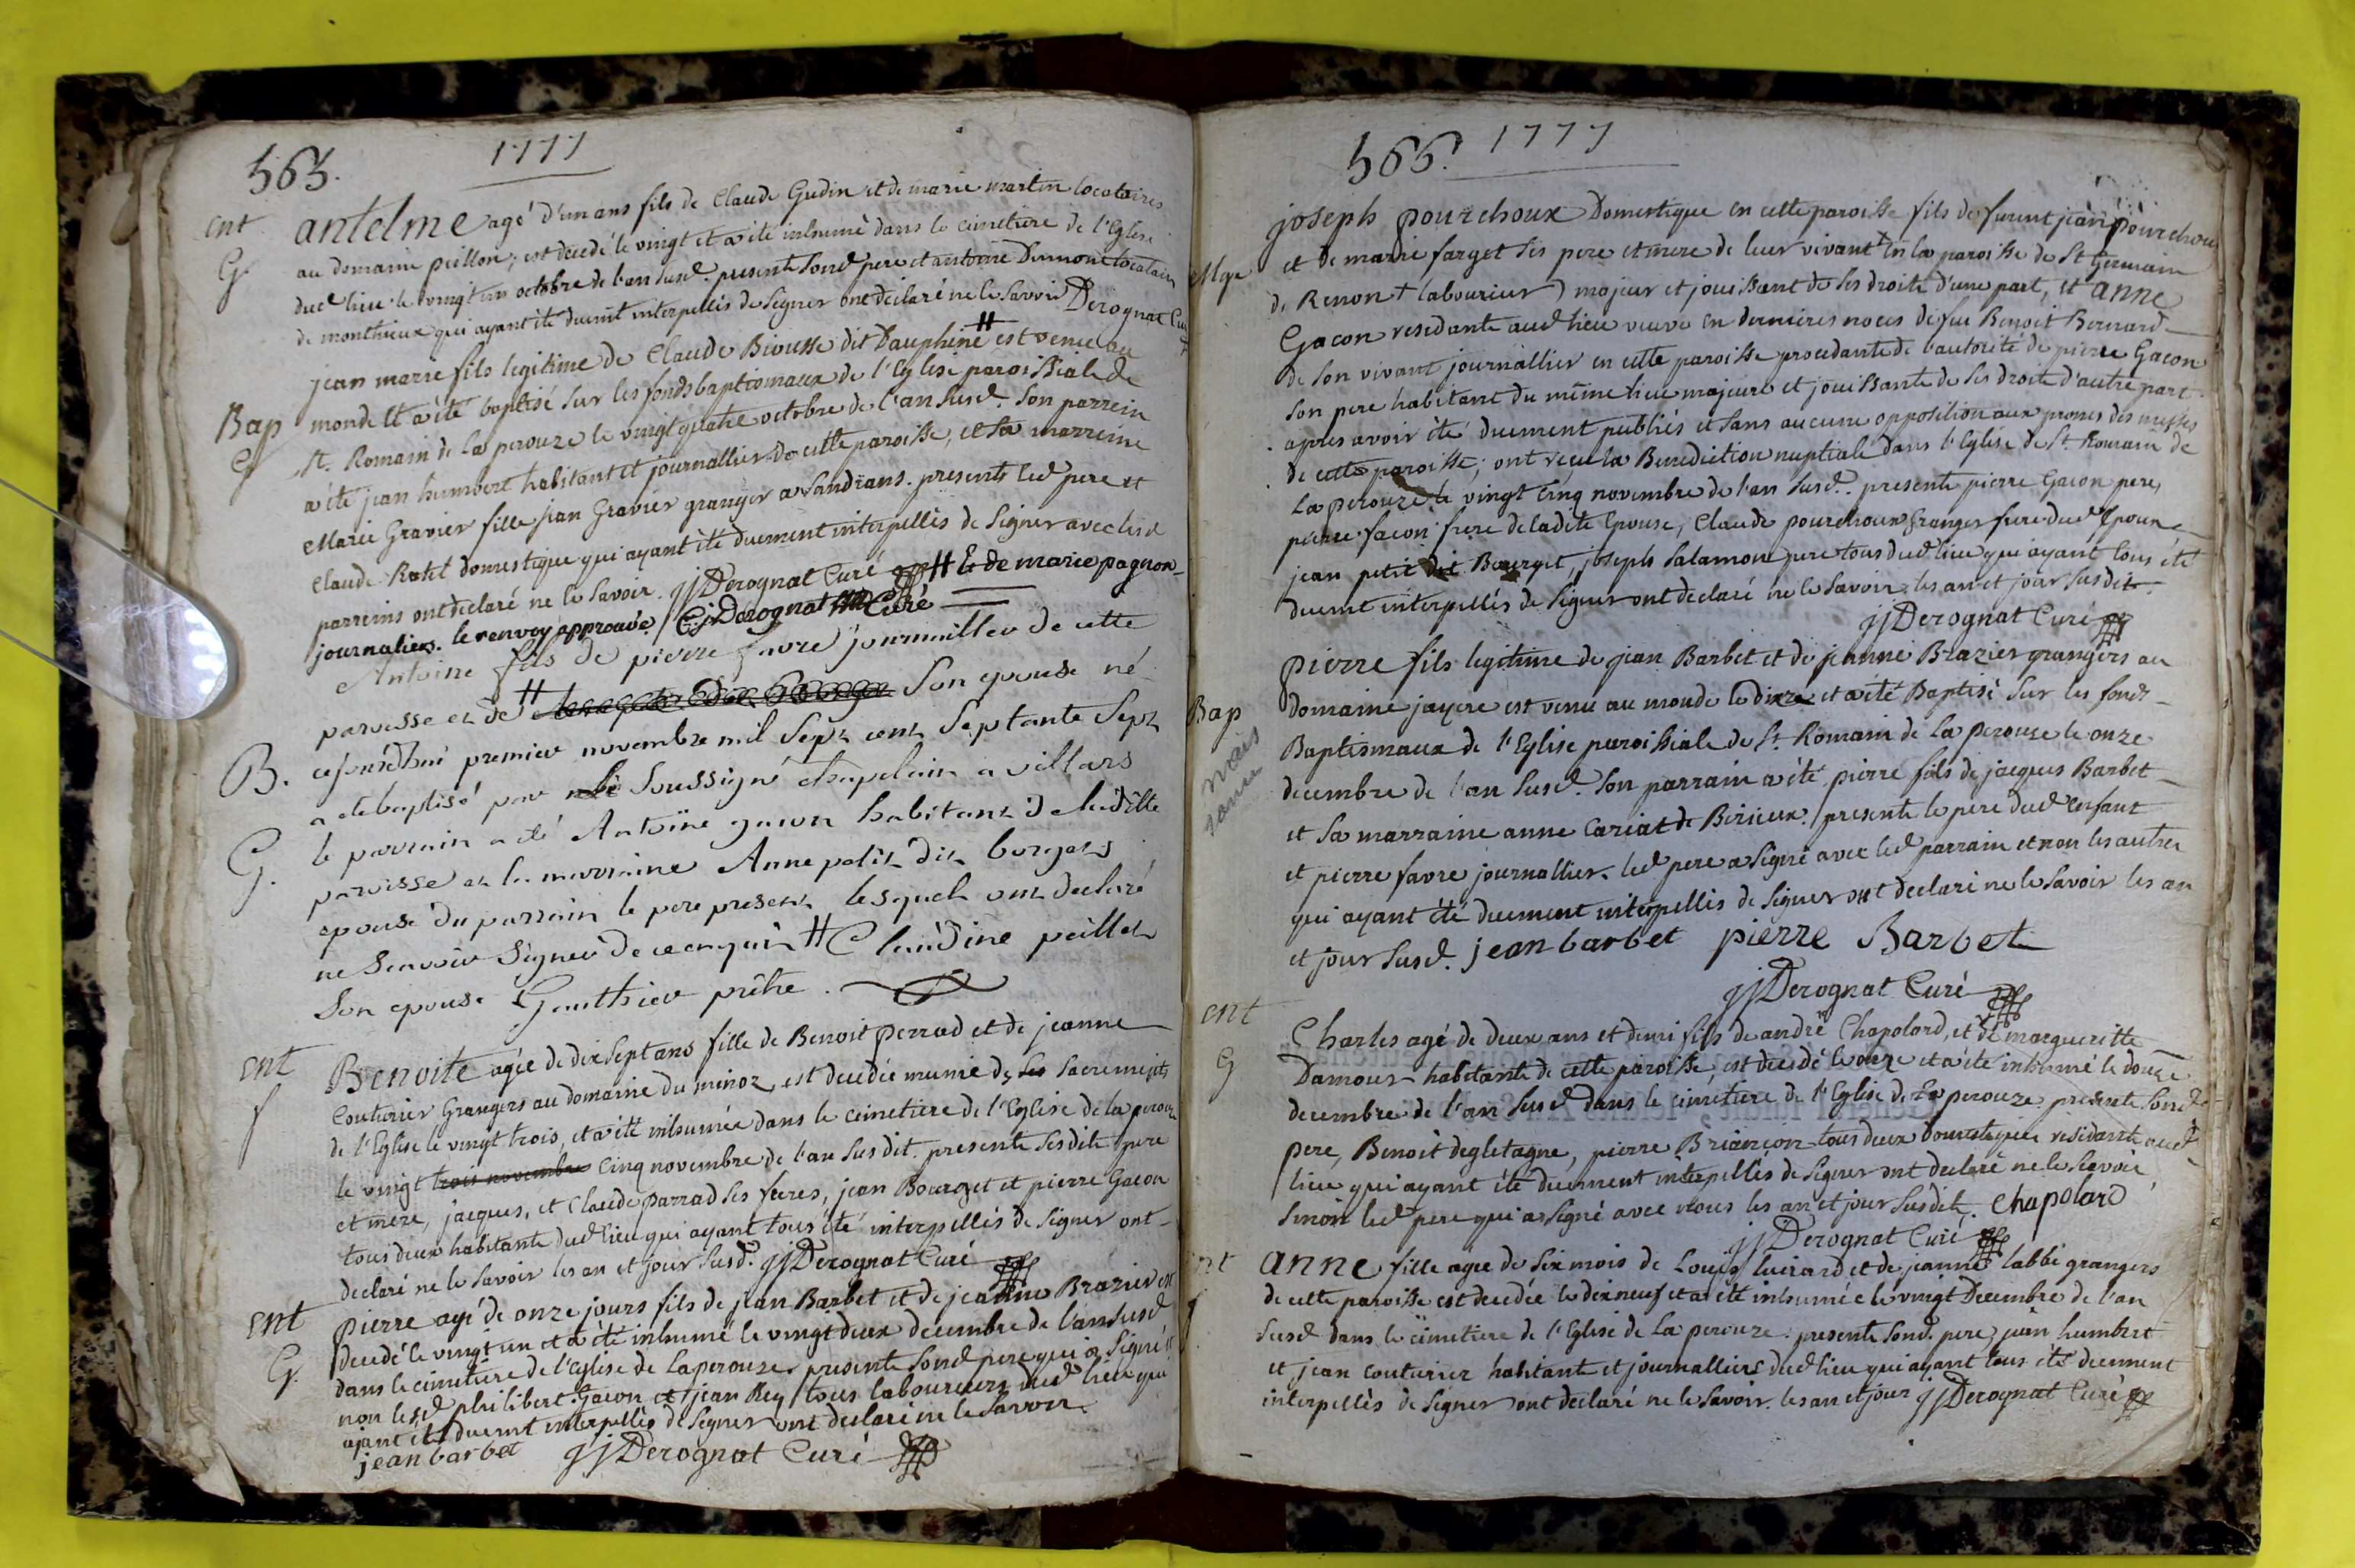 565.
1777
ent
G
antelme agé d'un ans fils de Claude Gudin et de marie martin locataires
au domaine peillon; est decedé le vingt et a été inhumé dans le cimetiere de l'Eglise
dud lieu le vingt un octobre de l'an susd. presents sond pere et antoine locataire
de monthieux qui ayant été duement interpellés de signer ont declaré ne le savoir Derognat Curé
Bap
G
jean marie fils legitime de Claude Biousse dit Dauphiné # est venu au
monde et a été baptisé sur les fonds baptismaux de l'Eglise paroissiale de
St. Romain de la perouze le vingt quatre octobre de l'an susd. Son parrein
a été jean humbert habitant et journallier de cette paroisse, et sa marreine
Marie Gravier fille jean Gravier granger a Sandrans. presents led pere et
Claude Ratel domestique qui ayant été duement interpellés de signer avec lesd
parreins ont declaré ne le savoir. jj Derognat Curé # Et de marie pagnon
journaliers. le renvoy approuvé jj Derognat Curé
B.
G.
Antoine fils de pierre favre journaillier de cette
paroisse et de # son epouse né
cejourd'hui premier novembre mil sept cent septante sept
a ete baptisé par soussigné chapelain a villars
le parrain a été Antoine gacon habitant de ladite
paroisse et la marraine Anne petit dit borget
epouse du parrain le pere present lesquels ont declaré
ne scavoir signer de ce enquis # Claudine peillet
son epouse Gauthier prêtre.
ent
f
Benoite agée de dix sept ans fille de Benoit perrad et de jeanne
Couturier Grangers au domaine du minoz, est decedée munie des Sacrements
de l'Eglise le vingt trois, et a été inhumée dans le cimetiere de l'Eglise de la perouze
le vingt trois novembre cinq novembre de l'an sus dit. presents sesdits pere
et mere, jacques, et Claude parrad ses freres, jean Bourget et pierre Gacon
tous deux habitants dud lieu qui ayant tous été interpellés de signer ont
declaré ne le savoir les an et jour susd. jj Derognat Curé
ent
G.
pierre agé de onze jours fils de jean Barbet et de jeanne Brazier est
decedé le vingt un et a été inhumé le vingt deux decembre de l'an susd
dans le cimetiere de l'eglise de Laperouze. presents sond pere qui a signé et
non lesd philibert Gacon et jean Rey tous laboureurs aud lieu qui
ayant été duement interpellés de signer ont declaré ne le savoir.
jean barbet jj Derognat Curé
566.
1777
Mge
joseph pourchoux Domestique en cette paroisse fils de furent jean pourchoux
et de marie farget ses pere et mere de leur vivant en la paroisse de St Germain
de Renon + laboureur majeur et jouissant de ses droits d'une part, et anne
Gacon residante aud lieu veuve en dernieres noces de feu Benoit Bernard
de son vivant journallier en cette paroisse procedante de l'autorité de pierre Gacon
son pere habitant du même lieu majeure et jouissante de ses droits d'autre part
apres avoir été duement publiés et sans aucune opposition aux prones des messes
de cette paroisse; ont reçu la Benediction nuptiale dans l'Eglise de St. Romain de
La perouze le vingt cinq novembre de l'an susd. presents pierre Gacon pere,
pierre facon frere de ladite Epouse, Claude pourchoux Granger frere dud Epoux
jean petit dit Bourget, joseph Salamon pere tous dud lieu qui ayant tous été
duement interpellés de signer ont declaré ne le savoir les an et jour susdits.
jj Derognat Curé
Bap
pierre fils legitime de jean Barbet et de jeanne Brazier grangers au
domaine jayere est venu au monde le dix et a été Baptisé sur les fonds
Baptismaux de l'Eglise paroissiale de St. Romain de La perouze le onze
decembre de l'an susd. Son parrain a été pierre fils de jacques Barbet
et sa marraine anne Cariat de Birieux. presents le pere dud enfant
et pierre favre journallier. led pere a signé avec led parrain et non les autres
qui ayant été duement interpellés de signer ont declaré ne le savoir les an
et jour susd. jean barbet pierre Barbet
jj Derognat Curé
ent
G
Charles agé de deux ans et demi fils de andré Chapolard, et de margueritte
Damour habitants de cette paroisse, est decedé le onze et a été inhumé le douze
decembre de l'an susd dans le cimetiere de l'Eglise de La perouze. presents sond
pere, Benoit degletagne, pierre Briançon tous deux domestiques residants aud
lieu qui ayant été duement interpellés de signer ont declaré ne le savoir
sinon led pere qui a signé avec nous les an et jour susdits. Chapolard
jj Derognat Curé
ent
f
anne fille agée de six mois de Louis luirard et de jeanne labbé grangers
de cette paroisse est decedée le dix neuf et a été inhumée le vingt Decembre de l'an
susd dans le cimetiere de l'Eglise de La perouze. presents sond. pere, jean humbert
et jean couturier habitant et journalliers dud lieu qui ayant tous été duement
interpellés de signer ont declaré ne le savoir. les an et jour jj Derognat Curé